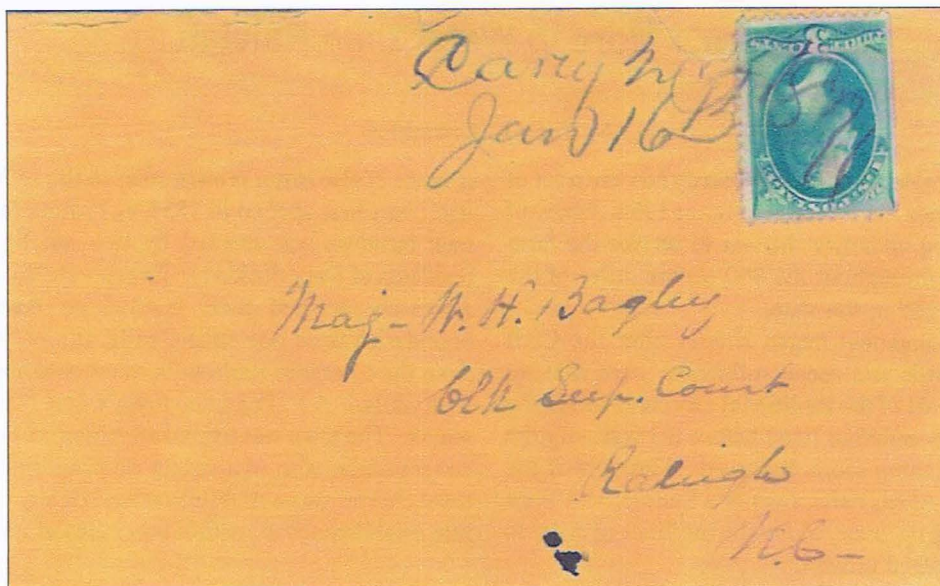 Cary N.C.
Jan 16
3
Maj- W. H. Bagley
Clk Sup. Court
Raleigh
N.C-